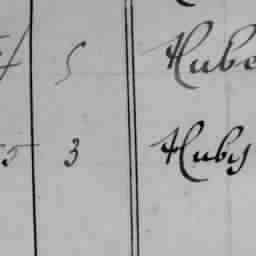 5 Hube
5 3 Huby